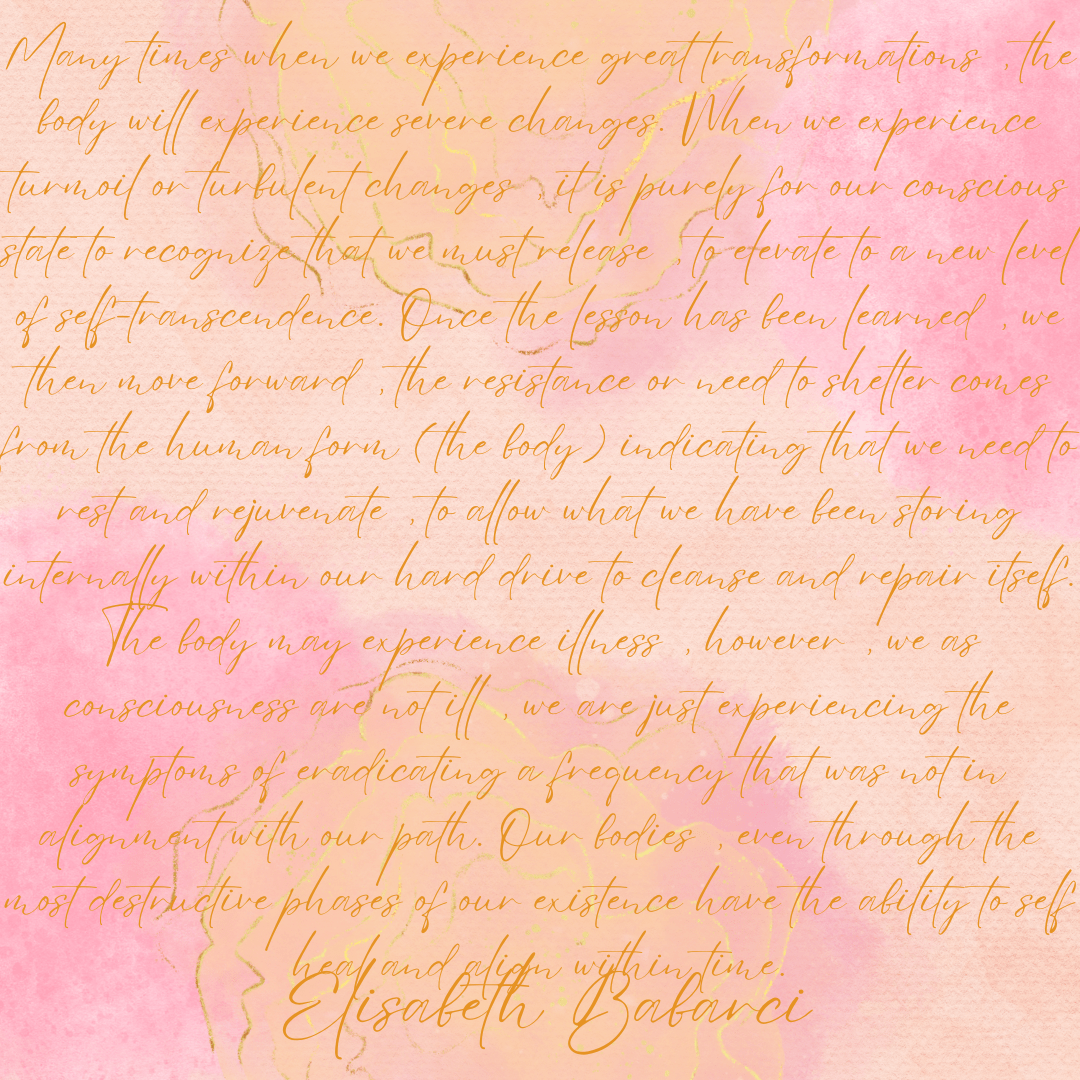 Many times when we experience great transformations , the
body will experience severe changes. When we experience
turmoil or turbulent changes , it is purely for our conscious
state to recognize that we must release , to elevate to a new level
of self-transcendence. Once the lesson has been learned , we
then move forward , the resistance or need to shelter comes
from the human form (the body) indicating that we need to
rest and rejuvenate , to allow what we have been storing
internally within our hard drive to cleanse and repair itself.
The body may experience illness , however , we as
consciousness are not ill , we are just experiencing the
symptoms of eradicating a frequency that was not in
alignment with our path. Our bodies , even through the
most destructive phases of our existence have the ability to self
heal and align within time.
Elisabeth Babarci